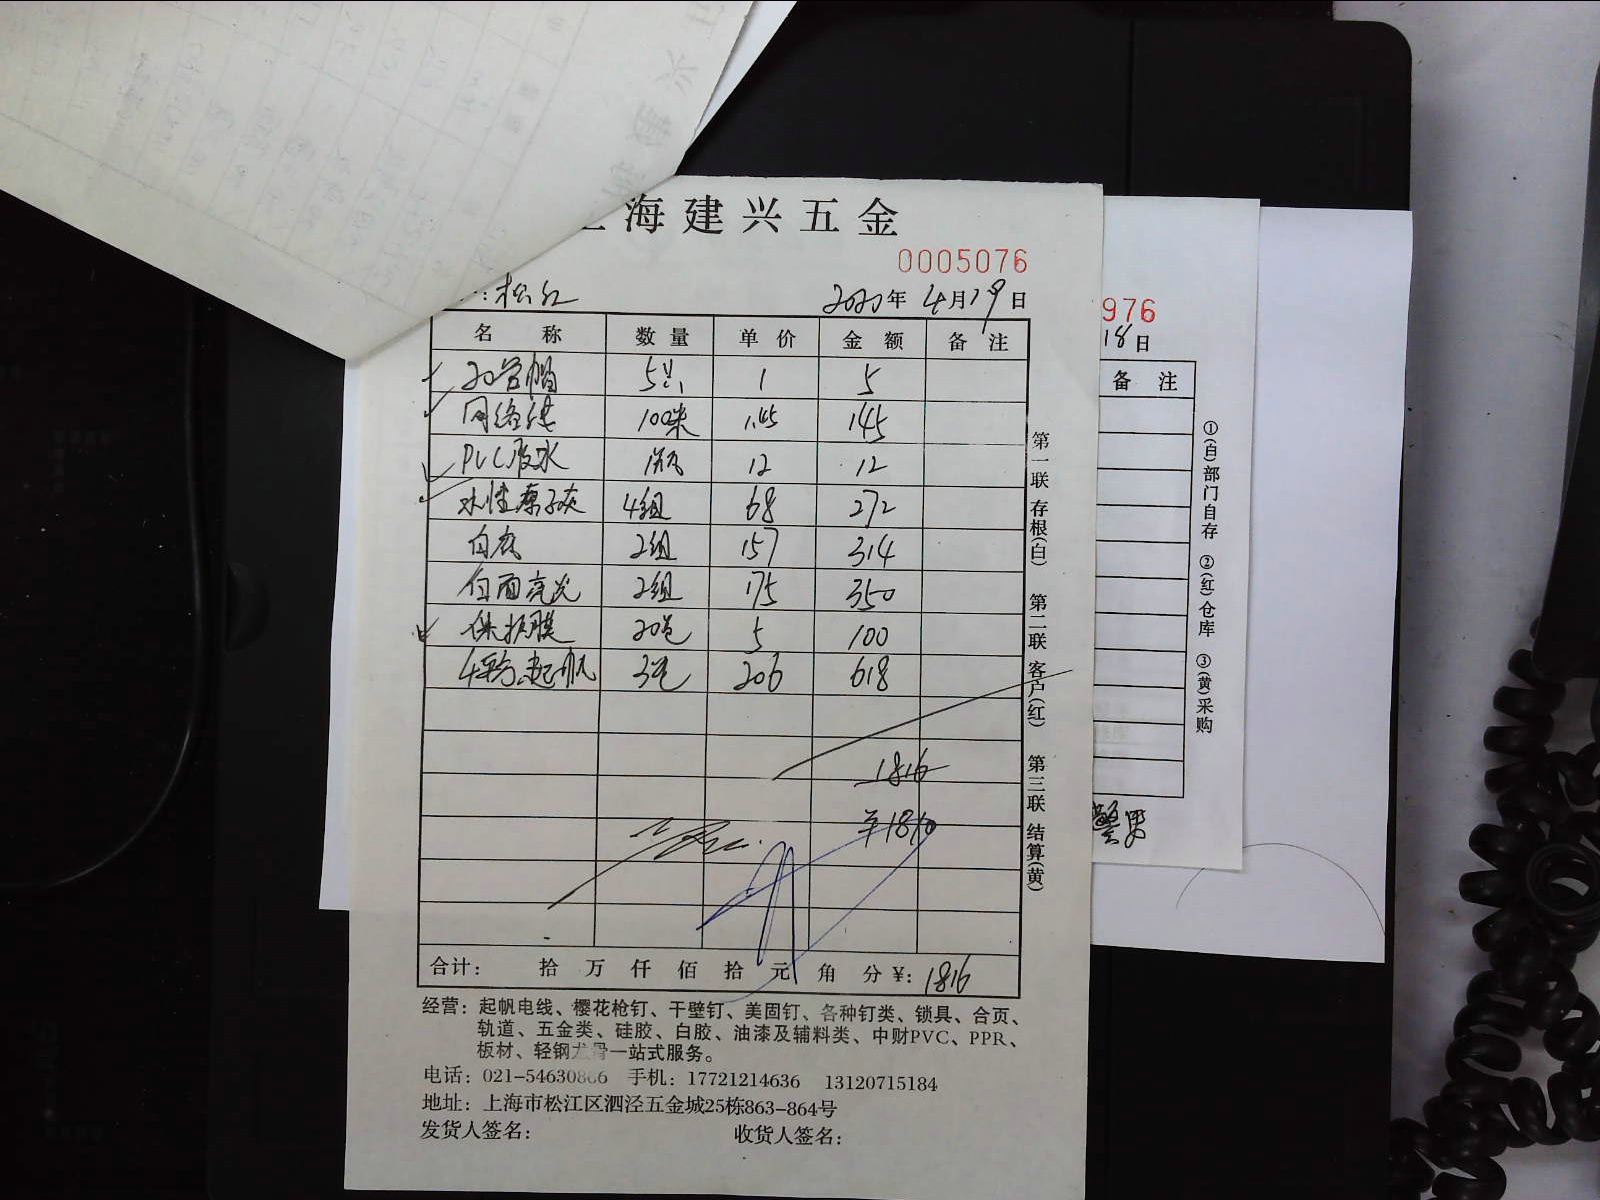 海建兴五金
0005076
：松江 2020年4月19日
名称 数量 单价 金额 备注
20管帽 5只 1 5
网络线 100米 1.45 145
PVC胶水 1瓶 12 12
水性原子灰 4组 68 272
白底 2组 157 314
白面亮光 2组 175 350
保护膜 20包 5 100
4平方起帆 3卷 206 618
1816
¥1810
合计： 拾 万 仟 佰 拾 元 角 分 ¥：1816
第一联 存根(白) 第二联 客户(红) 第三联 结算(黄)
经营：起帆电线、樱花枪钉、干壁钉、美固钉、各种钉类、锁具、合页、
轨道、五金类、硅胶、白胶、油漆及辅料类、中财PVC、PPR、
板材、轻钢龙骨一站式服务。
电话：021-54630866 手机：17721214636 13120715184
地址：上海市松江区泗泾五金城25栋863-864号
发货人签名： 收货人签名：
976
18日
备注
①(白)部门自存 ②(红)仓库 ③(黄)采购